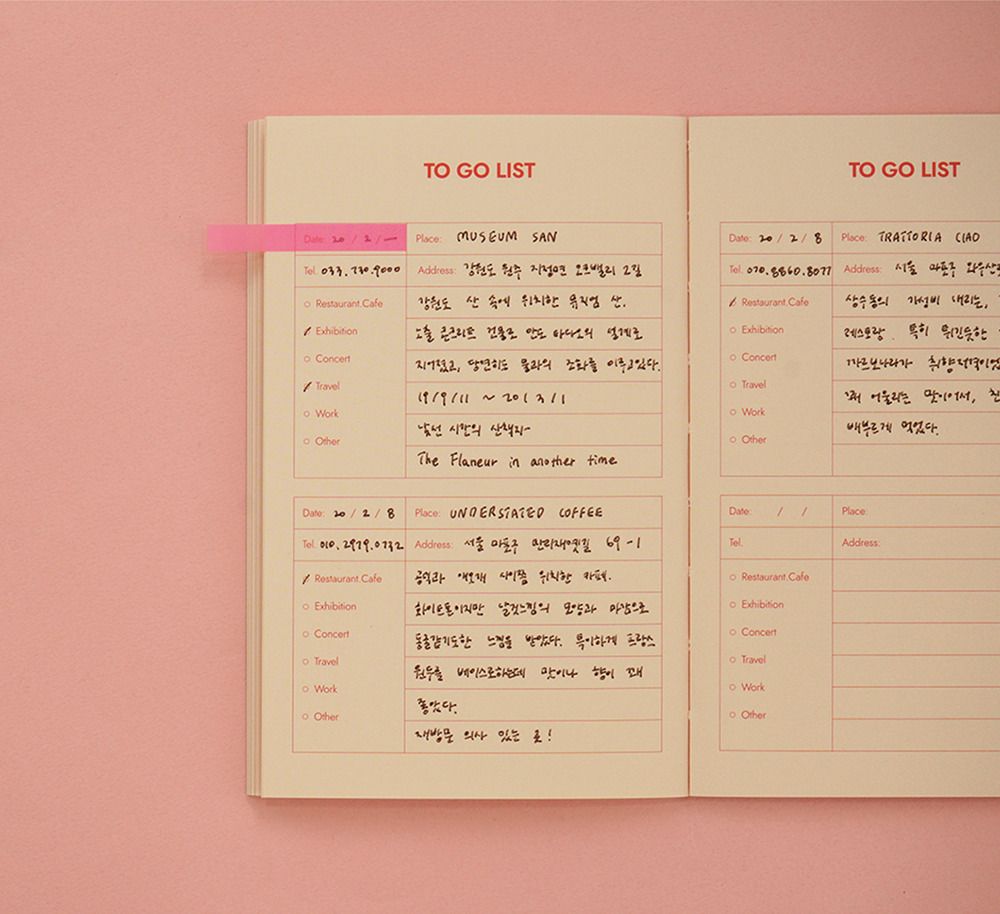 TO GO LIST
Date: 20 / 2 / —
Place: MUSEUM SAN
Tel. 033.730.9000
Address: 강원도 원주 지정면 오크밸리 2길
Restaurant.Cafe
Exhibition
Concert
Travel
Work
Other
강원도 산 속에 위치한 뮤지엄 산.
노출 콘크리트 건물로 안도 타다오의 설계로
지어졌고, 당연히도 물과의 조화를 이루고있다.
19/9/11 ~ 201 3/1
낯선 시간의 산책자-
The Flaneur in another time
Date: 20 / 2 / 8
Place: UNDERSTATED COFFEE
Tel. 010.2979.0732
Address: 서울 마포구 만리재옛길 69-1
Restaurant.Cafe
Exhibition
Concert
Travel
Work
Other
공덕과 애오개 사이쯤 위치한 카페.
화이트톤이지만 날것느낌의 모양과 마감으로
동굴같기도한 느낌을 받았다. 특이하게 프랑스
원두를 베이스로하는데 맛이나 향이 꽤
좋았다.
재방문 의사 있는 곳!
TO GO LIST
Date: 20 / 2 / 8
Place: TRATTORIA CIAO
Tel. 070.8860.8077
Address: 서울 마포구
Restaurant.Cafe
Exhibition
Concert
Travel
Work
Other
상수동의 가성비 내리는,
레스토랑. 특히
까르보나라가
꽤 어울리는 맛이어서,
배부르게 먹었다.
Date: / /
Place:
Tel.
Address:
Restaurant.Cafe
Exhibition
Concert
Travel
Work
Other